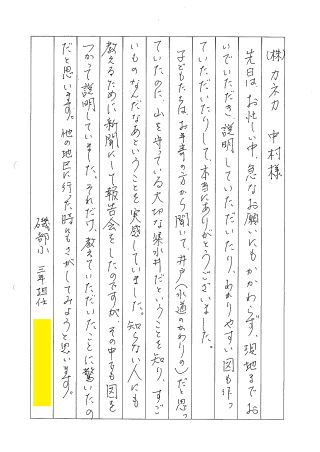 (株)カネカ 中村様
先日は、お忙しい中、急なお願いにもかかわらず、現地までお
いでいただき、説明していただいたり、わかりやすい図も作っ
ていただいたりして、本当にありがとうございました。
子どもたちは、お寺の方から聞いて、井戸(水道のかわりの)だと思っ
ていたのに、山を守っている大切な集水井だということを知り、すご
いものなんだなあということを実感していました。知らない人にも
教えるために、新聞にして報告会をしたのですが、その中でも図を
つかって説明していました。それだけ、教えていただいたことに驚いたの
だと思います。他の地区に行った時もさがしてみようと思います。
磯部小 三年担任